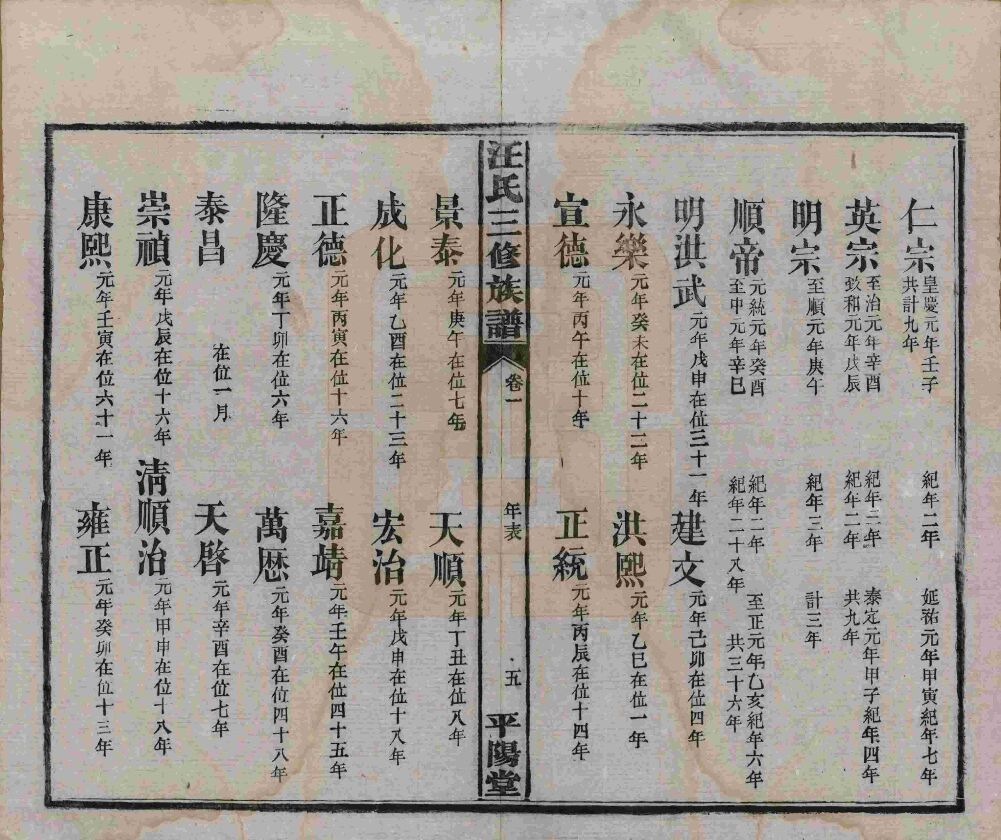 仁宗 皇慶元年壬子 紀年二年 延祐元年甲寅紀年七年
共計九年
英宗 至治元年辛酉 紀年三年 泰定元年甲子紀年四年
致和元年戊辰 紀年二年 共九年
明宗 至順元年庚午 紀年三年 計三年
順帝 元統元年癸酉 紀年二年 至正元年乙亥紀年六年
至申元年辛巳 紀年二十八年 共三十六年
明洪武 元年戊申在位三十一年 建文 元年己卯在位四年
永樂 元年癸未在位二十二年 洪熙 元年乙巳在位一年
宣德 元年丙午在位十年 正統 元年丙辰在位十四年
汪氏三修族譜 卷一 年表 五 平陽堂
景泰 元年庚午在位七年 天順 元年丁丑在位八年
成化 元年乙酉在位二十三年 宏治 元年戊申在位十八年
正德 元年丙寅在位十六年 嘉靖 元年壬午在位四十五年
隆慶 元年丁卯在位六年 萬厯 元年癸酉在位四十八年
泰昌 在位一月 天啓 元年辛酉在位七年
崇禎 元年戊辰在位十六年 清順治 元年甲申在位十八年
康熙 元年壬寅在位六十一年 雍正 元年癸卯在位十三年